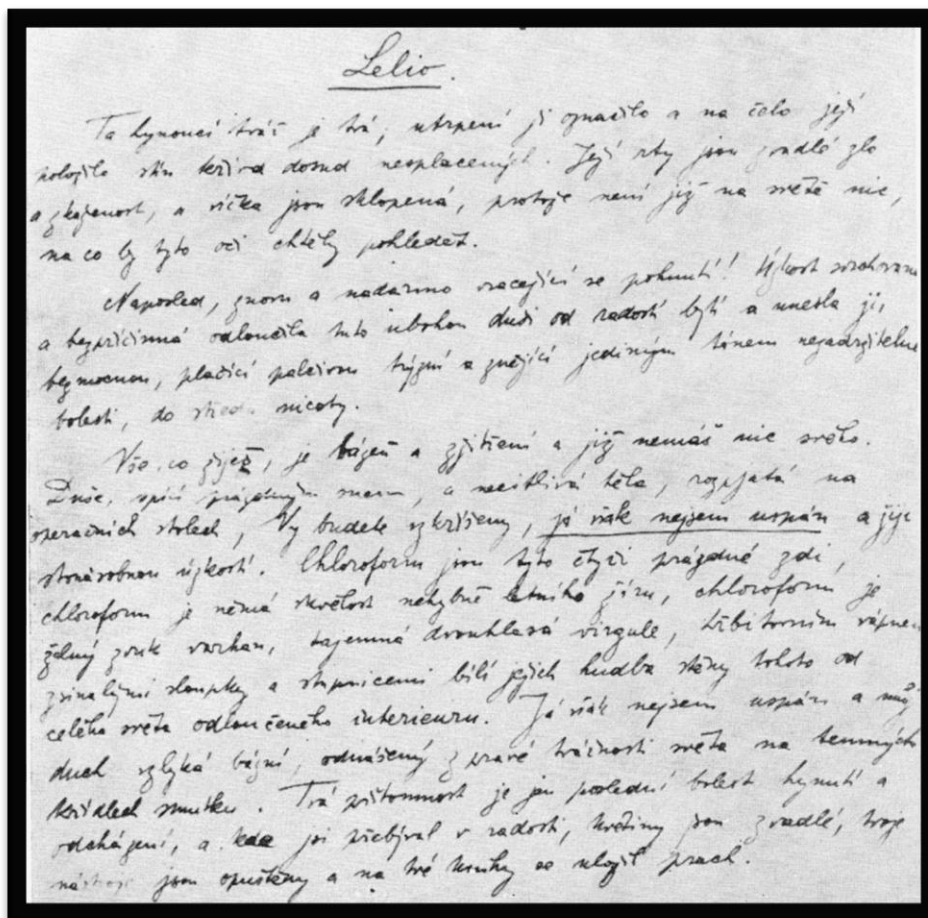 Lelio.
Ta hynoucí tvář je tvá, utrpení ji označilo a na čelo její
položilo stín křivd dosud nesplacených. Její rty jsou zvadlé zlo
a zkaženost, a víčka jsou sklopená, protože není již na světě nic,
na co by tyto oči chtěly pohledět.
Naposled, znovu a nadarmo vracející se pohnutí! Úzkost
a bezpříčinná odloučila tuto ubohou duši od radostí bytí a unesla ji,
bezmocnou, plačící trýzní a znějící jediným tónem nezadržitelné
bolesti, do středu nicoty.
Vše, co žiješ, je bázeň a zjitření a již nemáš nic svého.
Duše, spící prázdným snem, a necitlivá těla, rozpjatá na
operačních stolech, Vy budete vzkříšeny, já však nejsem uspán a žiji
stonásobnou úzkostí. Chloroform jsou tyto čtyři prázdné zdi,
chloroform je němá skvělost nehybně letního žáru, chloroform je
zvuk varhan, tajemná dvouhlavá virgule, hřbitovním vápnem
zsinalými sloupky a stupnicemi bílí jejich hudba stěny tohoto od
celého světa odloučeného interieuru. Já však nejsem uspán a můj
duch vzlyká bázní, odnášený z pravé tváře světa na temných
křídlech smutku. Tvá přítomnost je jen poslední bolest hynutí a
odcházení, a kde jsi přebýval v radosti, květiny jsou zvadlé, tvoje
nástroje jsou opuštěny a na tvé knihy se uložil prach.